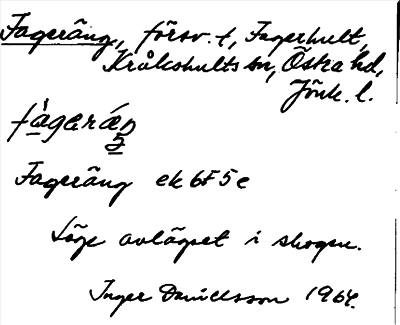 Fageräng, försv. t, Fagerhult,
Kråkshults sn, Östra hd,
Jönk. l.
fàgeráŋ
5
Fageräng ek 6F5e
Läge avlägset i skogen.
Inger Danielsson 1964.